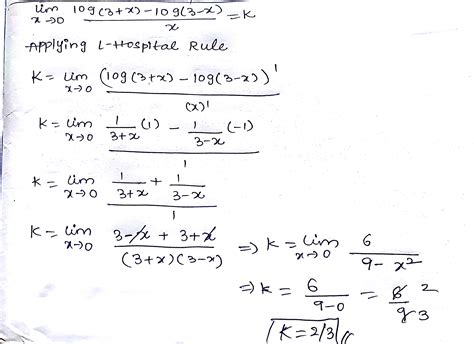 lim x→0 log(3+x) - log(3-x) / x = K
Applying L-Hospital Rule
K = lim x→0 (log(3+x) - log(3-x))' / (x)'
K = lim x→0 1/3+x (1) - 1/3-x (-1) / 1
K = lim x→0 1/3+x + 1/3-x / 1
K = lim x→0 3-x + 3+x / (3+x)(3-x) ⇒ K = lim x→0 6 / 9-x²
⇒ K = 6 / 9-0 = 6 2 / 9 3
K = 2/3 //